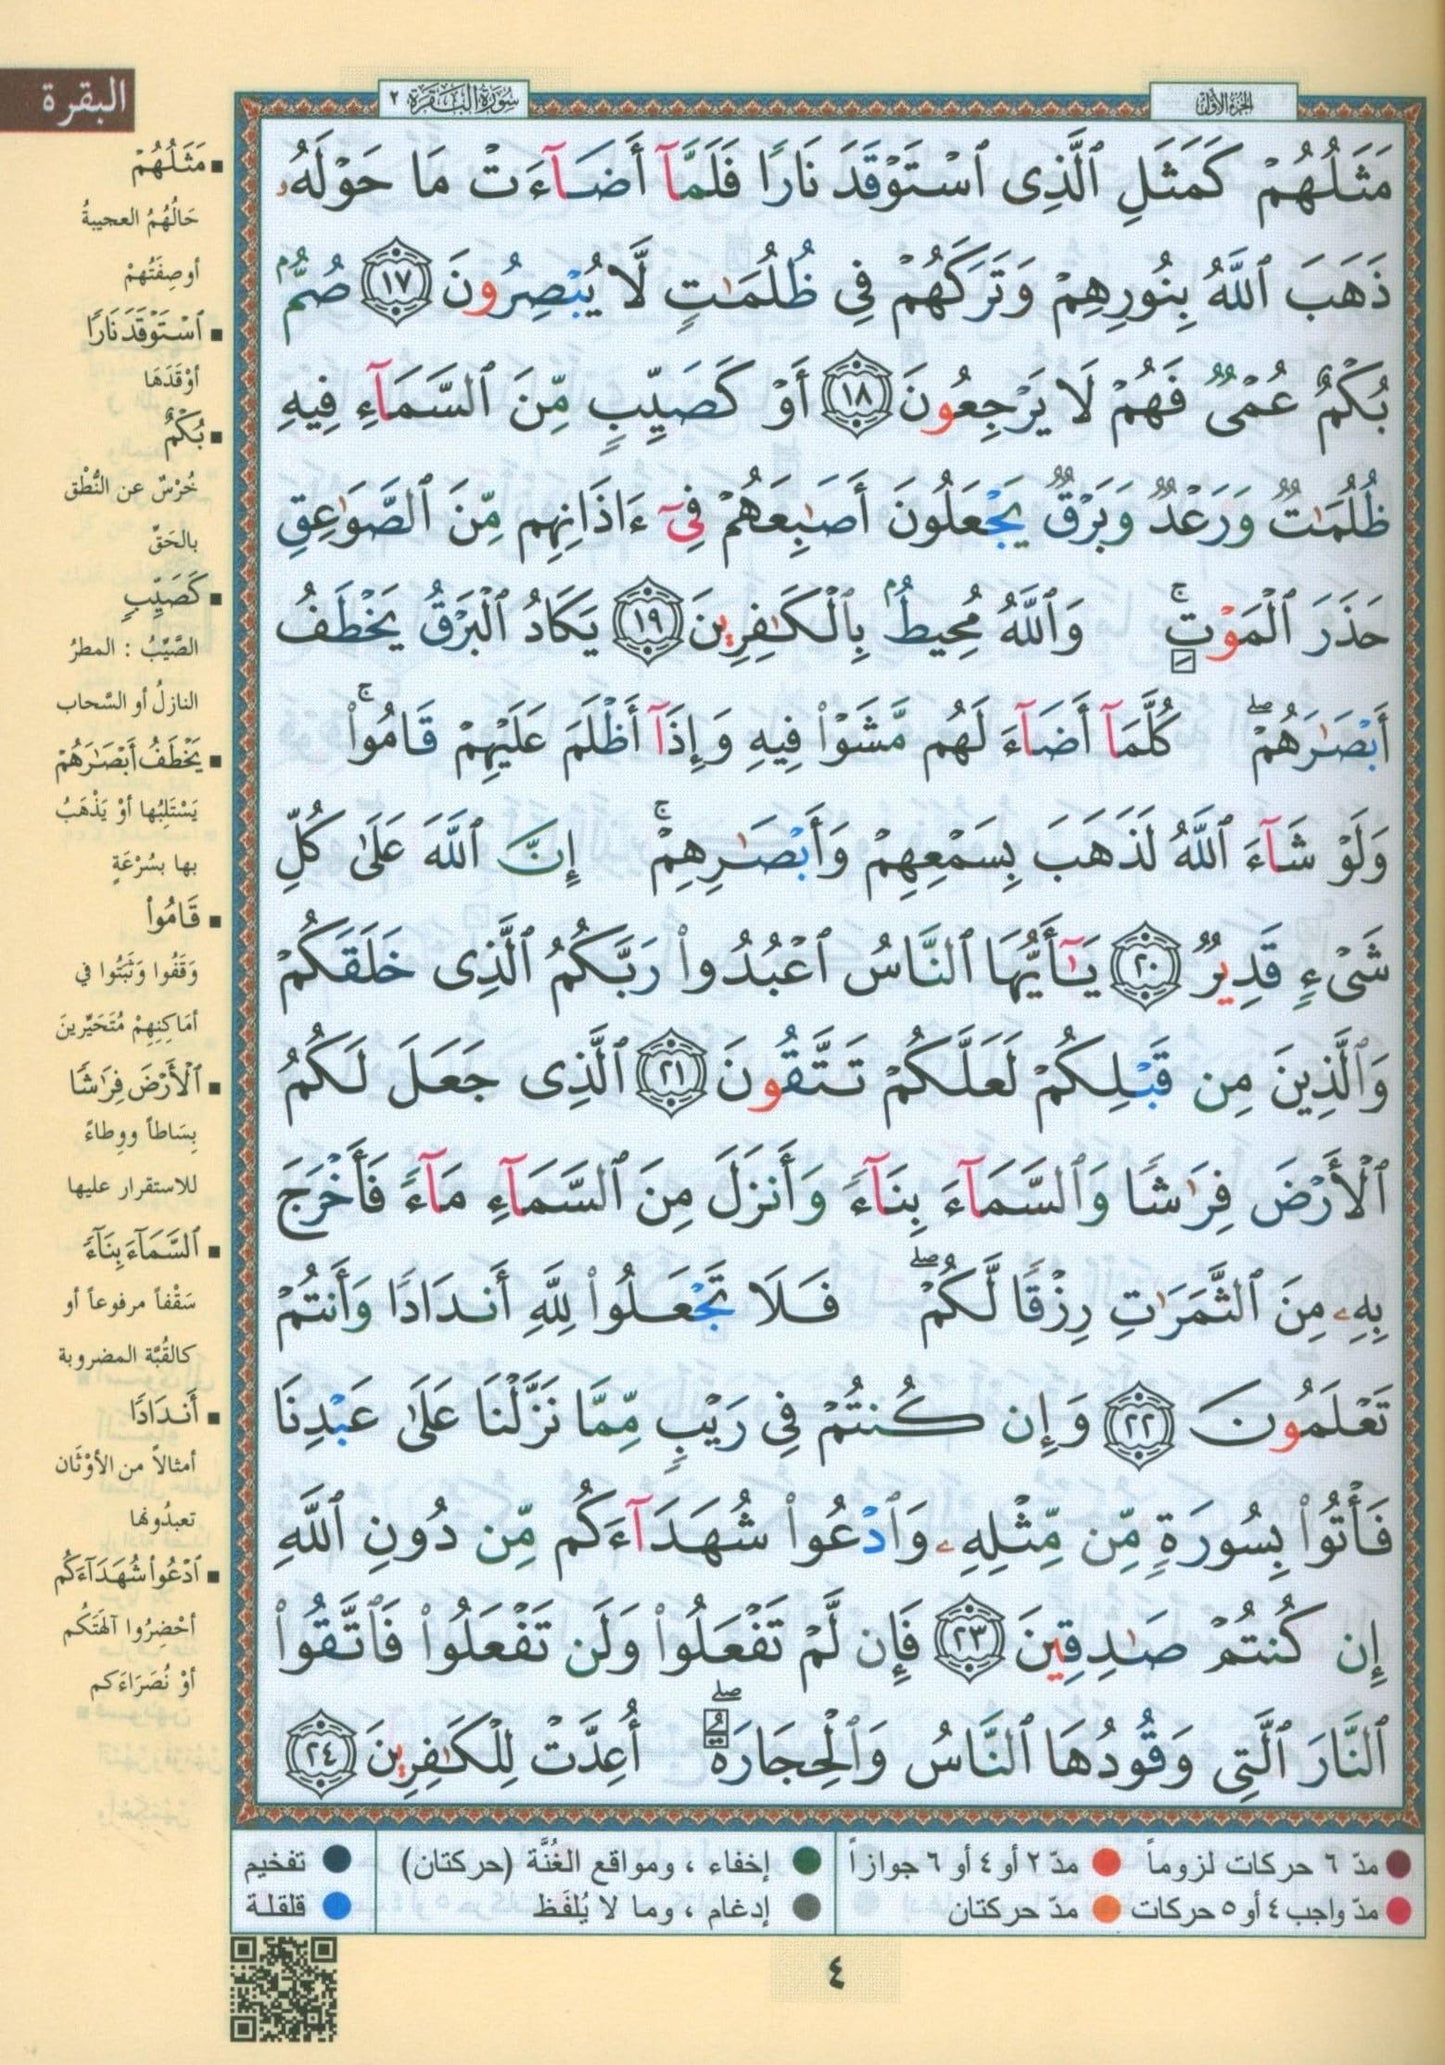 البقرة
سُورَةُ البَقَرَةِ ٢
الجُزْءُ الأَوَّلُ
مَثَلُهُمْ كَمَثَلِ ٱلَّذِى ٱسْتَوْقَدَ نَارًا فَلَمَّآ أَضَآءَتْ مَا حَوْلَهُۥ
ذَهَبَ ٱللَّهُ بِنُورِهِمْ وَتَرَكَهُمْ فِى ظُلُمَـٰتٍ لَّا يُبْصِرُونَ ١٧ صُمٌّۢ
بُكْمٌ عُمْىٌ فَهُمْ لَا يَرْجِعُونَ ١٨ أَوْ كَصَيِّبٍ مِّنَ ٱلسَّمَآءِ فِيهِ
ظُلُمَـٰتٌ وَرَعْدٌ وَبَرْقٌ يَجْعَلُونَ أَصَـٰبِعَهُمْ فِىٓ ءَاذَانِهِم مِّنَ ٱلصَّوَٰعِقِ
حَذَرَ ٱلْمَوْتِ ۚ وَٱللَّهُ مُحِيطٌۢ بِٱلْكَـٰفِرِينَ ١٩ يَكَادُ ٱلْبَرْقُ يَخْطَفُ
أَبْصَـٰرَهُمْ ۖ كُلَّمَآ أَضَآءَ لَهُم مَّشَوْا۟ فِيهِ وَإِذَآ أَظْلَمَ عَلَيْهِمْ قَامُوا۟ ۚ
وَلَوْ شَآءَ ٱللَّهُ لَذَهَبَ بِسَمْعِهِمْ وَأَبْصَـٰرِهِمْ ۚ إِنَّ ٱللَّهَ عَلَىٰ كُلِّ
شَىْءٍ قَدِيرٌ ٢٠ يَـٰٓأَيُّهَا ٱلنَّاسُ ٱعْبُدُوا۟ رَبَّكُمُ ٱلَّذِى خَلَقَكُمْ
وَٱلَّذِينَ مِن قَبْلِكُمْ لَعَلَّكُمْ تَتَّقُونَ ٢١ ٱلَّذِى جَعَلَ لَكُمُ
ٱلْأَرْضَ فِرَٰشًا وَٱلسَّمَآءَ بِنَآءً وَأَنزَلَ مِنَ ٱلسَّمَآءِ مَآءً فَأَخْرَجَ
بِهِۦ مِنَ ٱلثَّمَرَٰتِ رِزْقًا لَّكُمْ ۖ فَلَا تَجْعَلُوا۟ لِلَّهِ أَندَادًا وَأَنتُمْ
تَعْلَمُونَ ٢٢ وَإِن كُنتُمْ فِى رَيْبٍ مِّمَّا نَزَّلْنَا عَلَىٰ عَبْدِنَا
فَأْتُوا۟ بِسُورَةٍ مِّن مِّثْلِهِۦ وَٱدْعُوا۟ شُهَدَآءَكُم مِّن دُونِ ٱللَّهِ
إِن كُنتُمْ صَـٰدِقِينَ ٢٣ فَإِن لَّمْ تَفْعَلُوا۟ وَلَن تَفْعَلُوا۟ فَٱتَّقُوا۟
ٱلنَّارَ ٱلَّتِى وَقُودُهَا ٱلنَّاسُ وَٱلْحِجَارَةُ ۖ أُعِدَّتْ لِلْكَـٰفِرِينَ ٢٤
▪ مَثَلُهُمْ
حَالُهُمُ العجيبةُ
أو صِفَتُهُمْ
▪ ٱسْتَوْقَدَ نَارًا
أَوْقَدَهَا
▪ بُكْمٌ
خُرْسٌ عن النُّطْق
بالحَقِّ
▪ كَصَيِّبٍ
الصَّيِّبُ : المطرُ
النازلُ أو السَّحاب
▪ يَخْطَفُ أَبْصَـٰرَهُمْ
يَسْتَلِبُها أوْ يَذْهَبُ
بها بسُرْعَةٍ
▪ قَامُوا۟
وَقَفُوا وَثَبَتُوا في
أمَاكِنِهِمْ مُتَحَيِّرينَ
▪ ٱلْأَرْضَ فِرَٰشًا
بِسَاطاً ووِطاءً
للاستقرار عليها
▪ ٱلسَّمَآءَ بِنَآءً
سَقْفاً مرفوعاً أو
كالقُبَّة المضروبة
▪ أَندَادًا
أمثالاً من الأوْثَان
تعبدُونها
▪ ٱدْعُوا۟ شُهَدَآءَكُم
أحْضِرُوا آلهَتَكُم
أوْ نُصَرَاءَكم
مدّ ٦ حركات لزوماً مدّ ٢ أو ٤ أو ٦ جوازاً
مدّ واجب ٤ أو ٥ حركات مدّ حركتان
إخفاء ، ومواقع الغُنَّة (حركتان)
إدغام ، وما لا يُلفَظ
تفخيم
قلقلة
٤